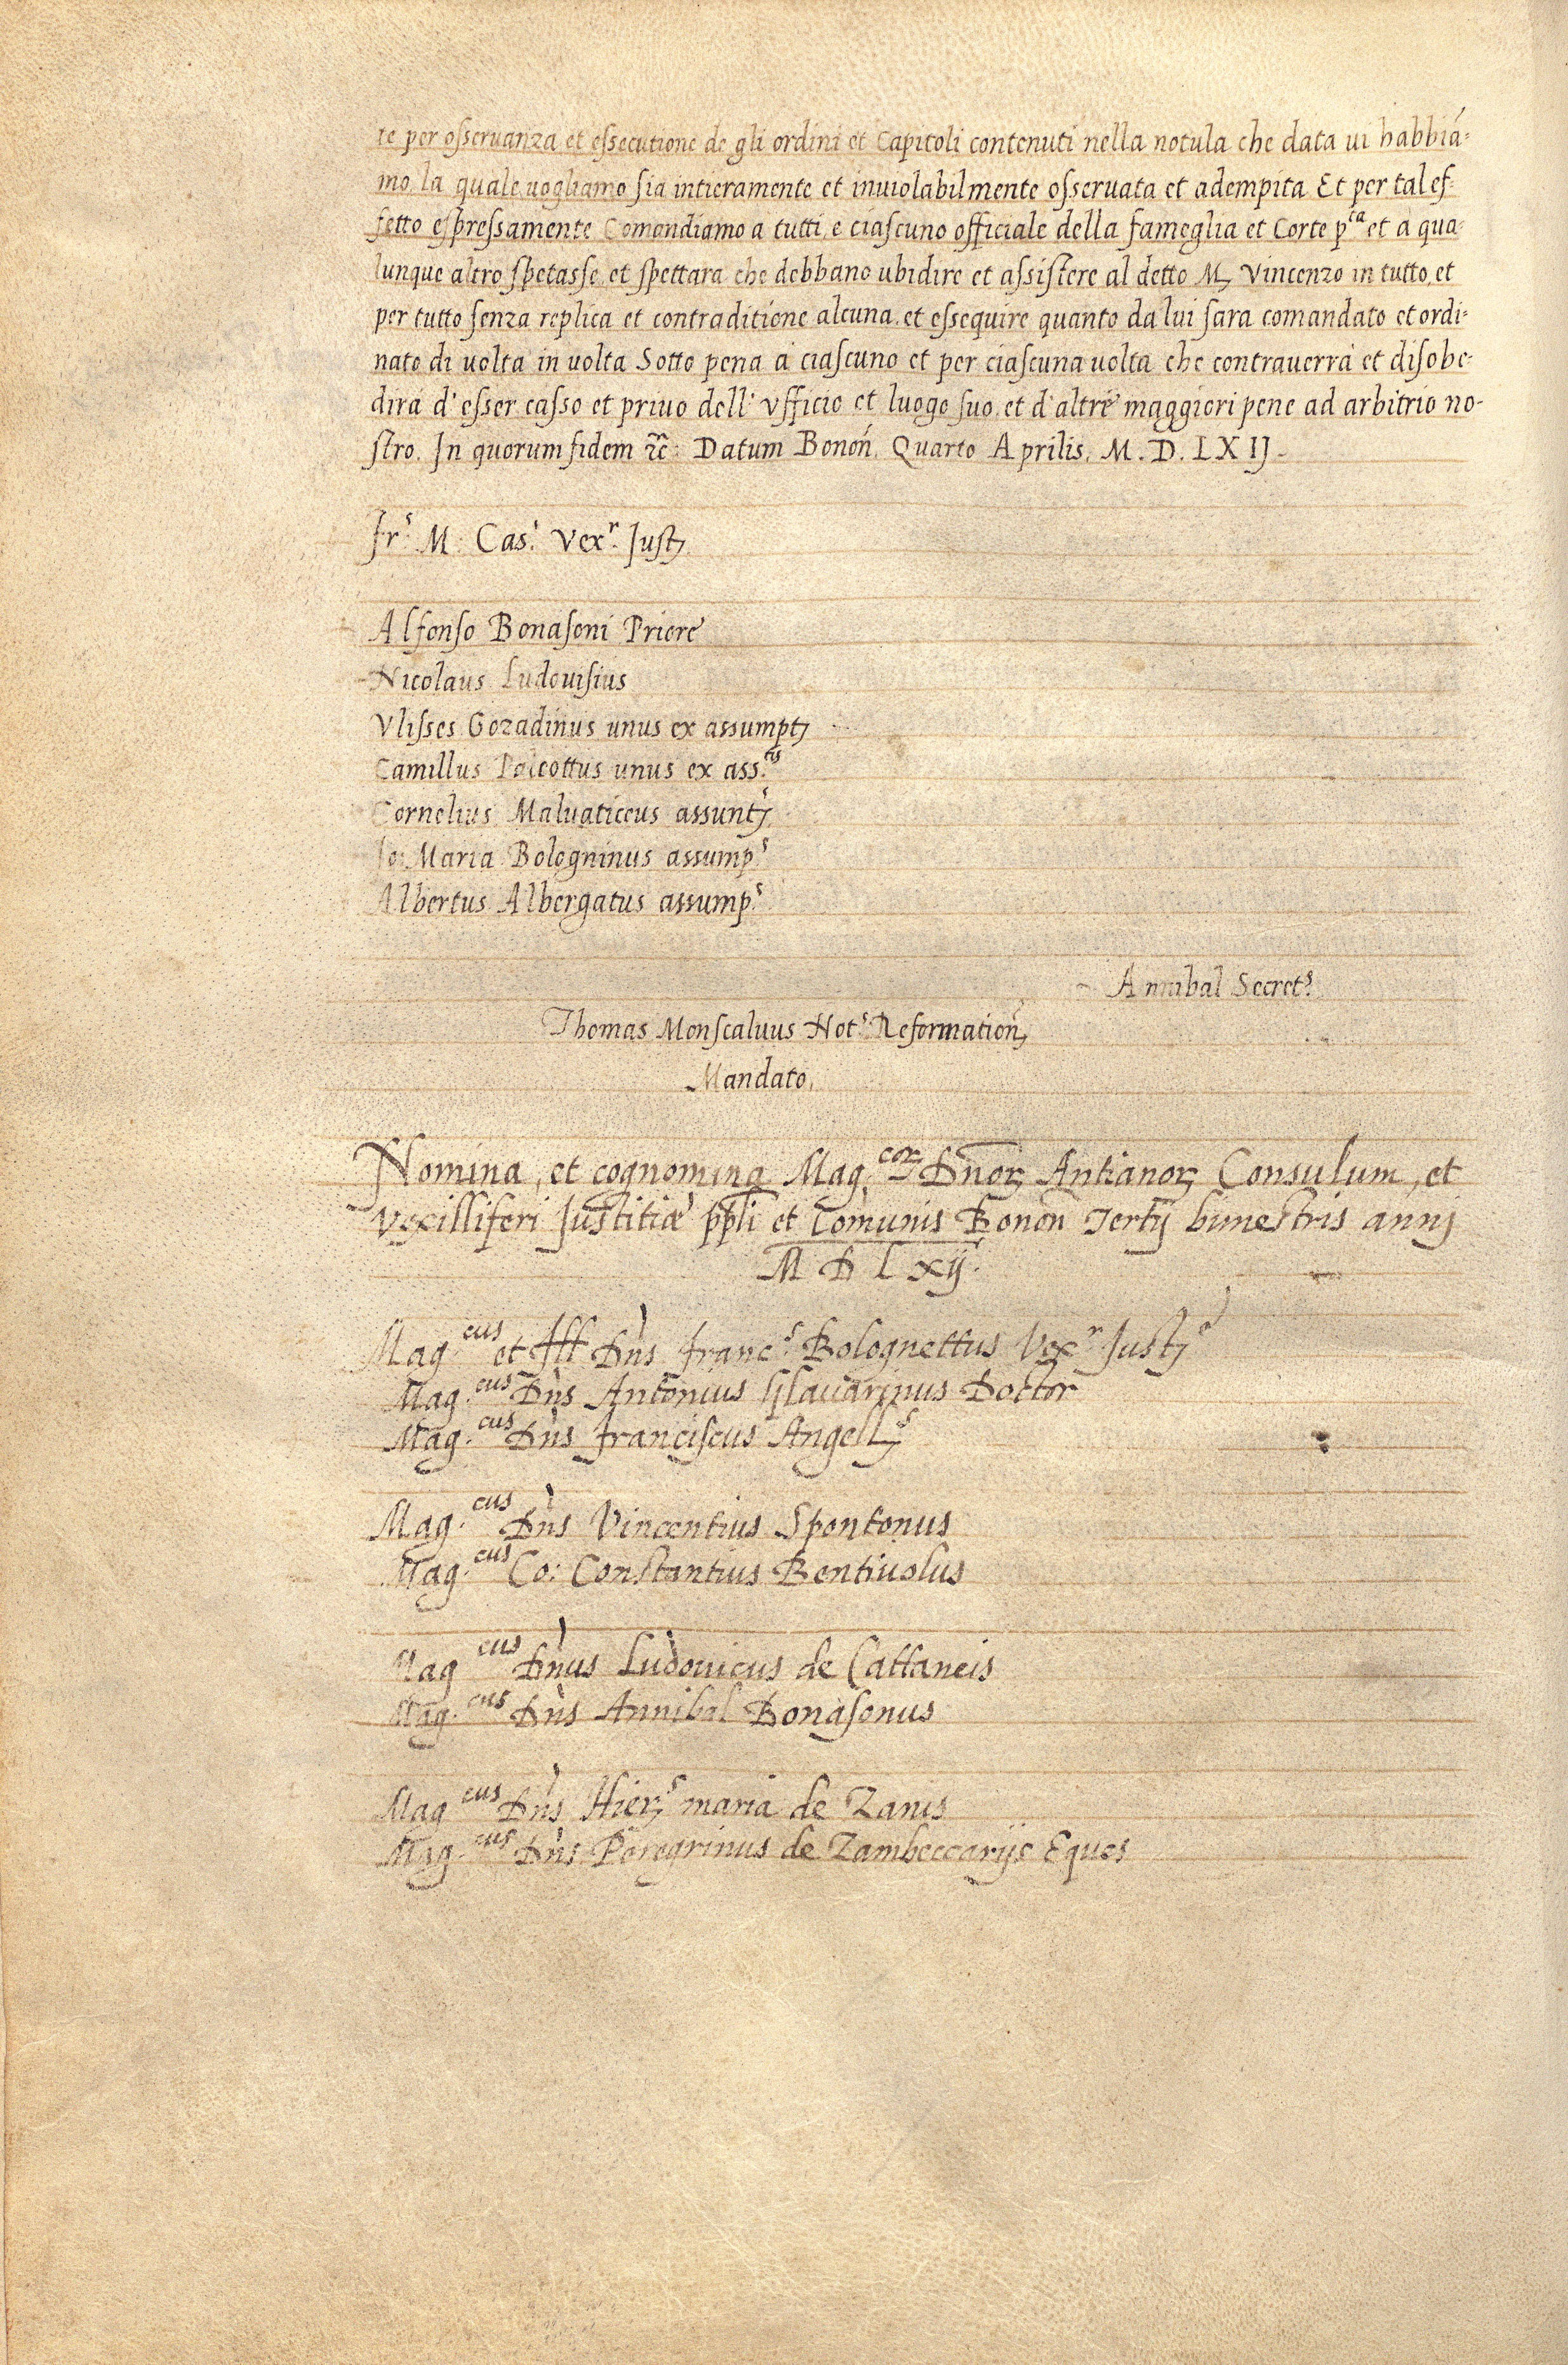 te per osseruanza et essecutione de gli ordini et Capitoli contenuti nella notula che data ui habbiá-
mo, la quale uogliamo sia intieramente et inuiolabilmente osseruata et adempita Et per tal ef-
fetto espressamente Comandiamo a tutti, e ciascuno officiale della fameglia et Corte p.ta et a qua-
lunque altro spetasse, et spettara che debbano ubidire et assistere al detto M. Vincenzo in tutto, et
per tutto senza replica et contraditione alcuna, et essequire quanto da lui sara comandato et ordi-
nato di uolta in uolta Sotto pena a ciascuno et per ciascuna uolta che contrauerrà et disobe-
dirà d'esser casso et priuo dell'Vfficio et luogo suo, et d'altre maggiori pene ad arbitrio no-
stro. In quorum fidem etc: Datum Bonoñ. Quarto Aprilis. M. D. LXIJ.
Fr.s M. Cas.s Vex.r Just
Alfonso Bonasoni Priore
Nicolaus Ludouisius
Vlisses Gozadinus unus ex assumpt
Camillus Paleottus unus ex ass.tis
Cornelius Maluaticcus assunt
Jo: Maria Bologninus assump.s
Albertus Albergatus assump.s
Annibal Secret.s
Thomas Monscaluus Not.s Reformation
Mandato.
Nomina, et cognomina Mag.cor Dnor Antianor Consulum, et
Vexilliferi Justitiæ ppli et Comunis Bonon Tertij bimestris annj
M D L xij.
Mag.cus et Ill Dns Franc.s Bolognettus Vex.r Just
Mag.cus Dns Antonius Doctor
Mag.cus Dns Franciscus Angell
Mag.cus Dns Vincentius Spontonus
Mag.cus Co: Constantius Bentiuolus
Mag.cus Dnus Ludouicus de Cattaneis
Mag.cus Dns Annibal Bonasonus
Mag.cus Dns Hier.s maria de Zanis
Mag.cus Dns Peregrinus de Zambeccarijs Eques